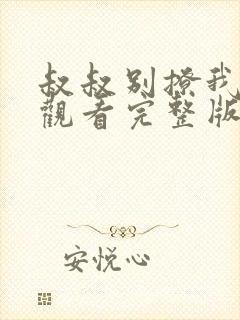 叔叔别撩我
觀看完整版
安悦心